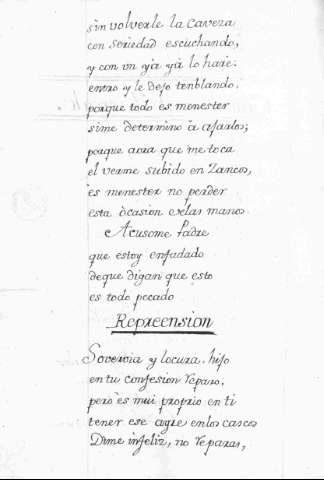 sin volverle la caveza
con seriedad escuchando,
y con vn yà yà lo harè:
entro y le dejo tenblando.
porque todo es menester
si me determino à ajarlos;
porque aora que me toca
el verme subido en Zancos,
es menester no perder
esta òcasion de las manos.
Acusome Padre
que estoy enfadado
de que digan que esto
es todo pecado
Repreension
Sovervia y locura, hijo
en tu confesion reparo,
pero es mui proprio en ti
tener ese ayre en los cascos
Dime infeliz, no reparas,